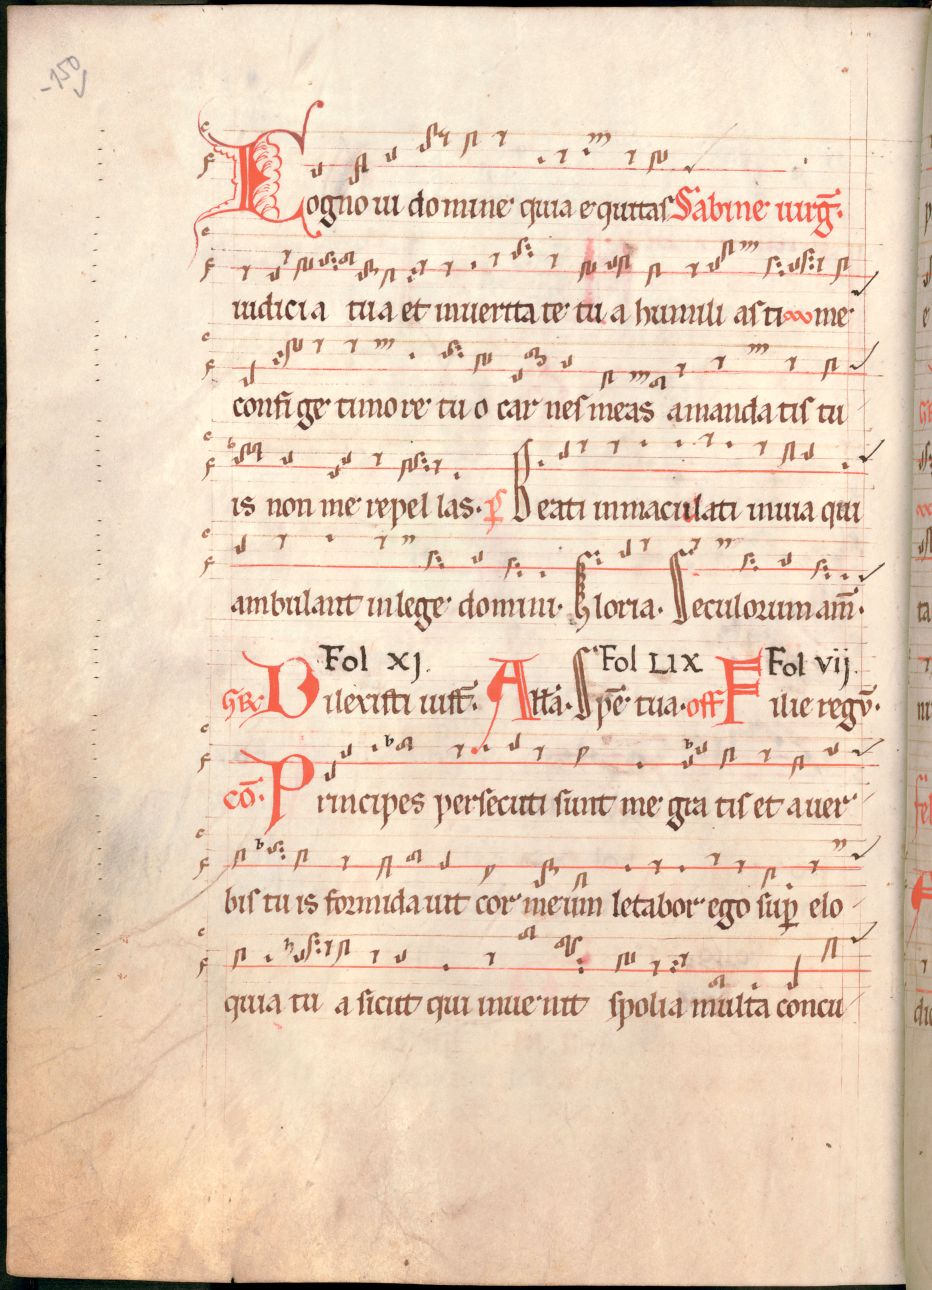 -150-
Cognoui domine quia equitas Sabine uirḡ.
iudicia tua et inueritate tua humiliasti me
confige timore tuo carnes meas amandatis tu
is non me repellas. p̄s Beati inmaculati inuia qui
ambulant inlege domini. Gloria. Seculorum am̄.
Fol XI. Fol LIX Fol vij.
GR. Dilexisti iust̄. All̄a. Spē tua. off Filie regū.
cō. Principes persecuti sunt me gratis et auer
bis tuis formidauit cor meum letabor ego sup̄ elo
quia tua sicut qui inuenit spolia multa concu